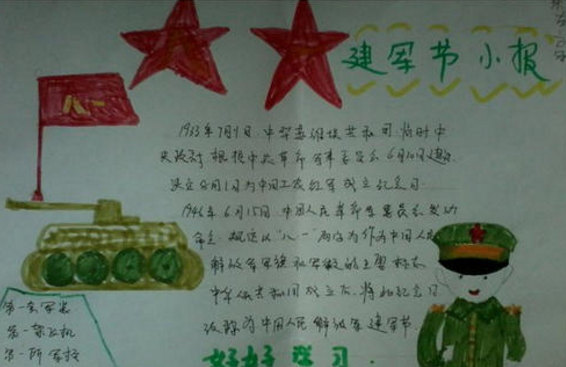 建军节小报
八一
1933年7月1日,中华苏维埃共和国临时中
央政府根据中央革命军事委员会6月30日建议,
决定8月1日为中国工农红军成立纪念日.
1949年6月15日,中国人民革命军事委员会发功
命令,规定以"八一"两字为作为中国人民
解放军军旗和军徽的主要标志
中华人民共和国成立后,将纪念日
改称为中国人民解放军建军节.
好好学习.
第一套军装
第一架飞机
第一所军校